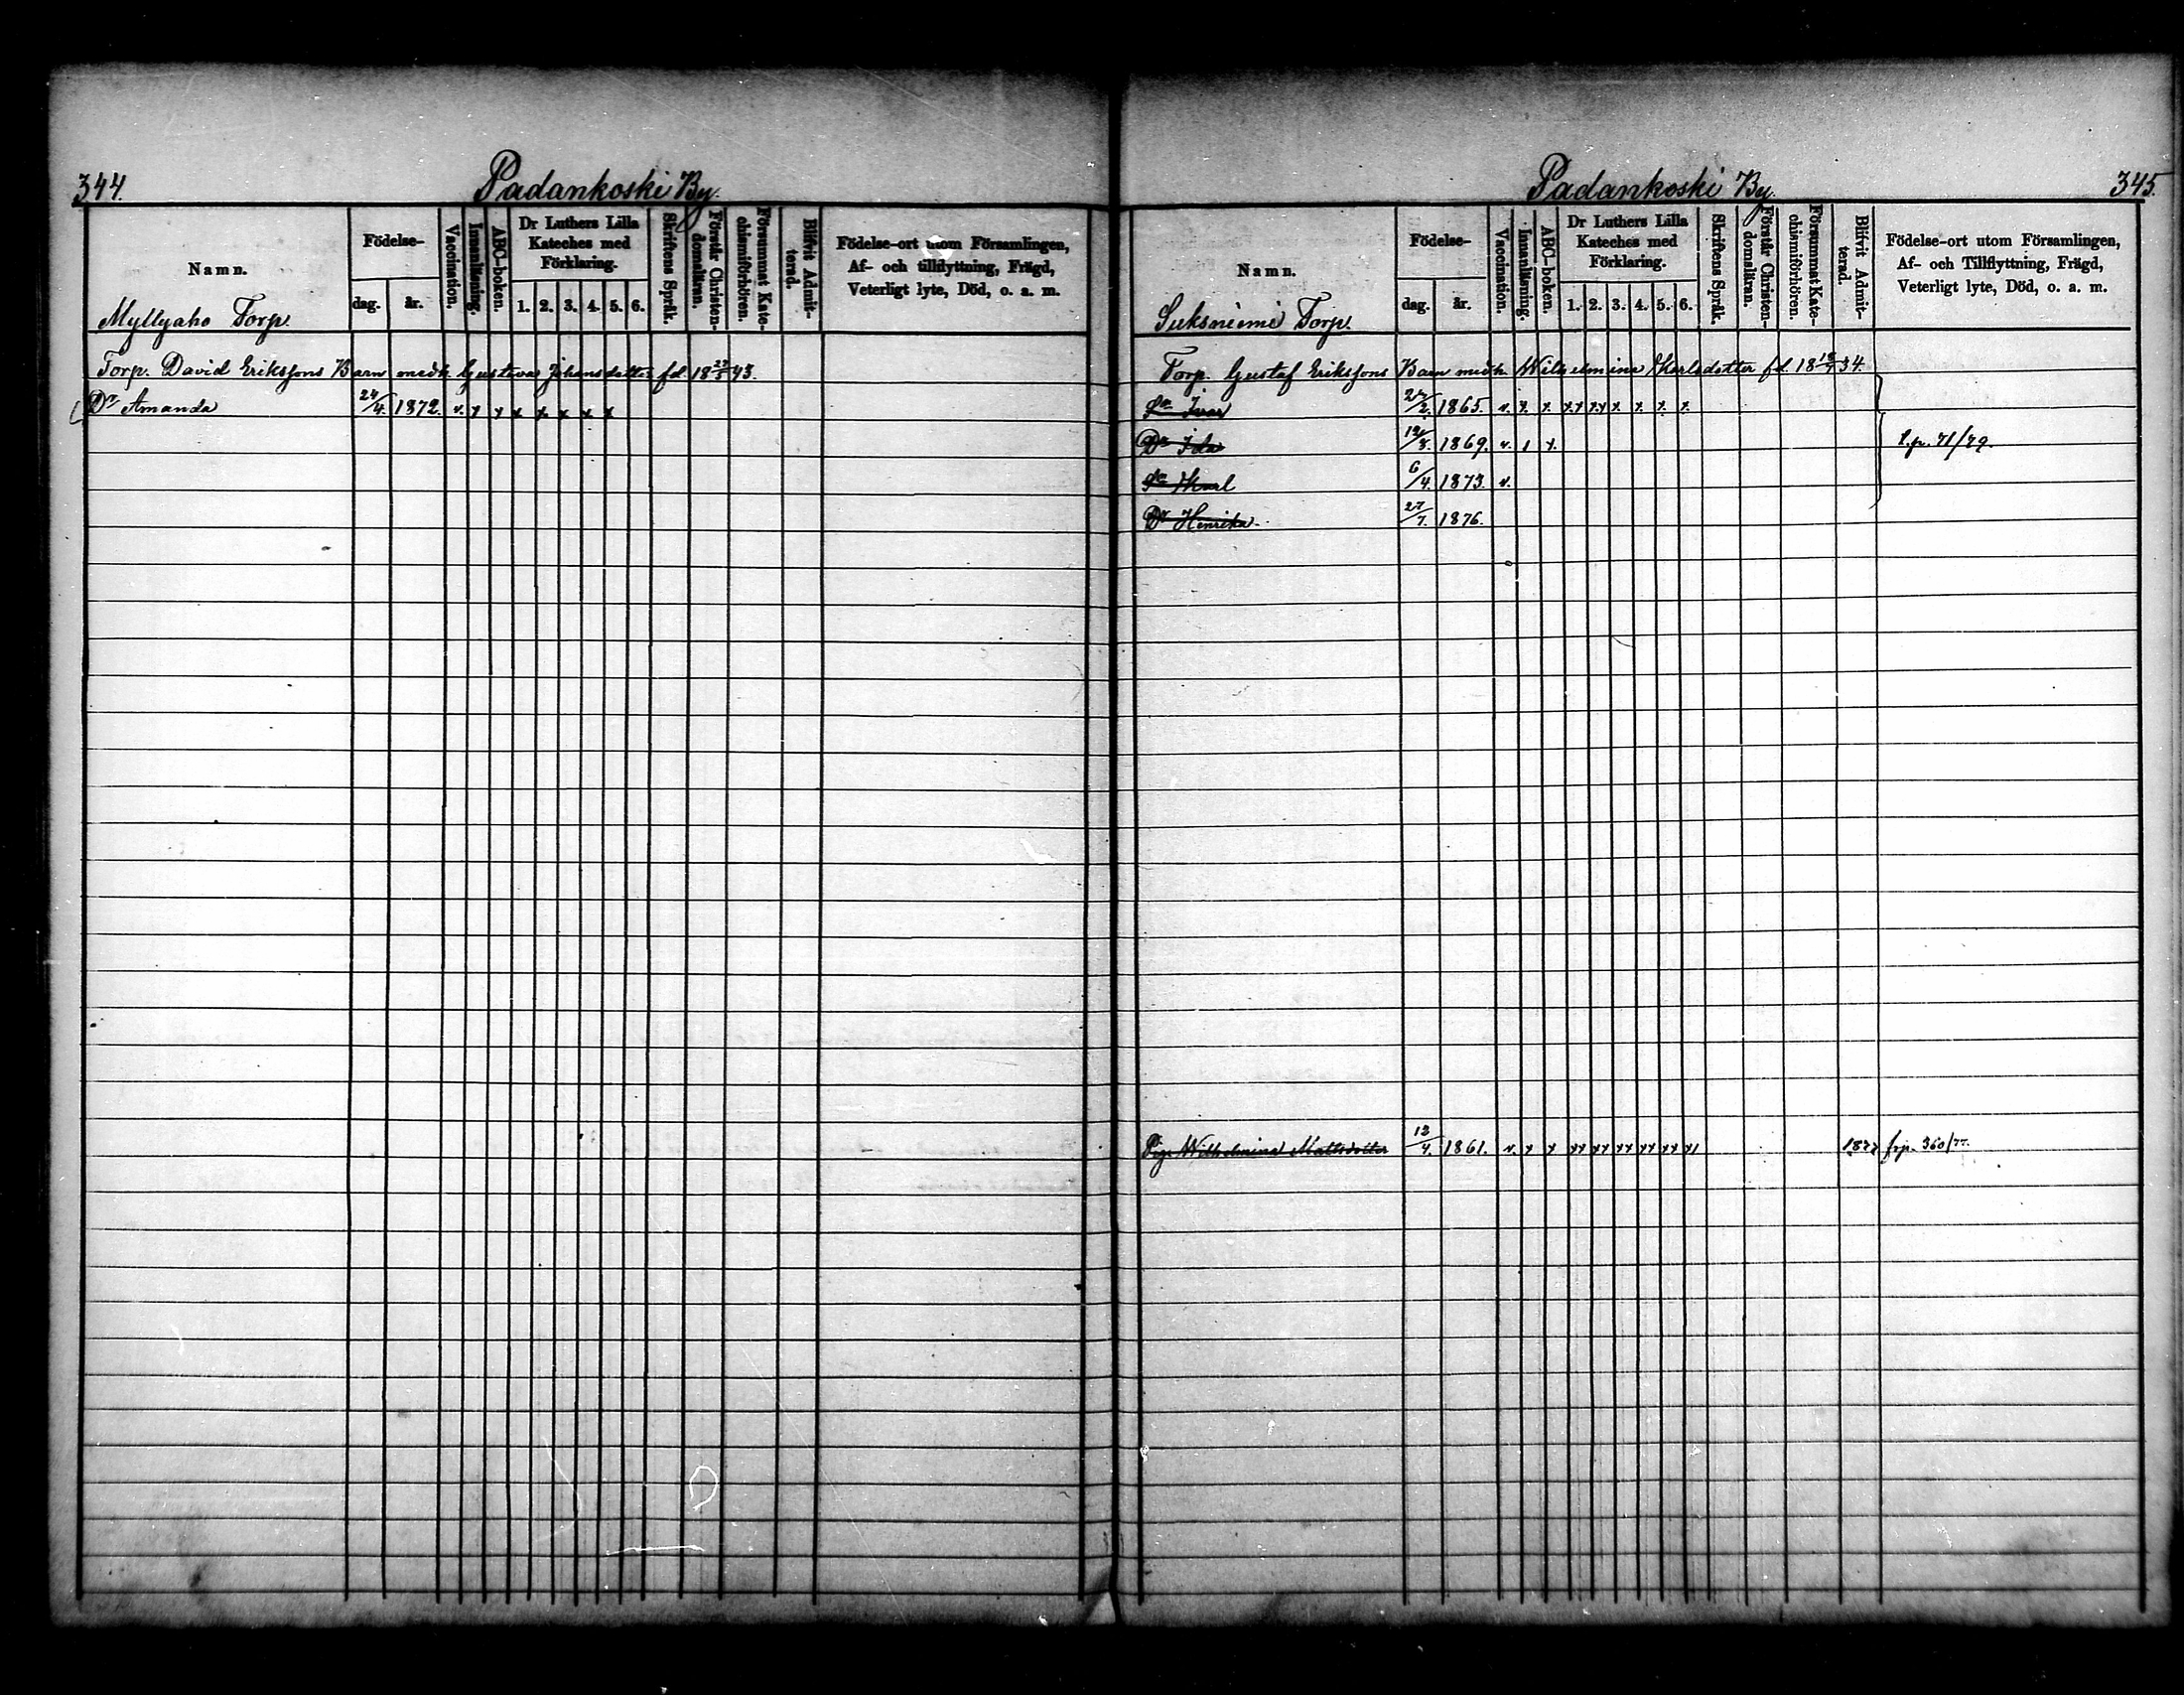 344.
Padankoski By.
Namn.
Födelse-
dag. år.
Vaccination.
Innanläsning.
ABC-boken.
Dr Luthers Lilla Kateches med Förklaring.
1. 2. 3. 4. 5. 6.
Skriftens Språk.
Förstår Christen-domsläran.
Försummat Kate-chismiförhören.
Blifvit Admit-terad.
Födelse-ort utom Församlingen,
Af- och tillflyttning, Frägd,
Veterligt lyte, Död, o. a. m.
Myllyaho Torp.
Torp. David Erikssons Barn med h. Gustava Johansdotter fd. 18 23/5 43.
Dr Amanda 24/4. 1872. v. x x x x x x x
Padankoski By.
345.
Namn.
Födelse-
dag. år.
Vaccination.
Innanläsning.
ABC-boken.
Dr Luthers Lilla Kateches med Förklaring.
1. 2. 3. 4. 5. 6.
Skriftens Språk.
Förstår Christen-domsläran.
Försummat Kate-chismiförhören.
Blifvit Admit-terad.
Födelse-ort utom Församlingen,
Af- och Tillflyttning, Frägd,
Veterligt lyte, Död, o. a. m.
Suksniemi Torp.
Torp. Gustaf Erikssons Barn med h. Wilhelmina Karlsdotter fd. 34.
Sn Ivar 1865. v. x. x. xx xx x. x. x. x.
Dr Ida 1869. v. 1 x.
Sn Karl 6/4. 1873. v.
Dr Henrika. 27/7. 1876.
71/79.
Pig. Wilhelmina Mattsdotter 12/4. 1861. v. x x xx xx xx xx xx x1 1877 360/77.